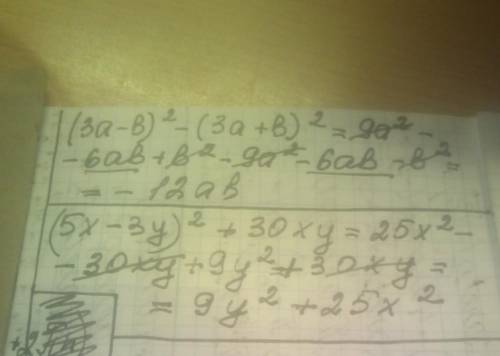 (3a-b)² - (3a+b)² = 9a² -
- 6ab + b² - 9a² - 6ab - b² =
= - 12ab
(5x - 3y)² + 30xy = 25x² -
- 30xy + 9y² + 30xy =
= 9y² + 25x²